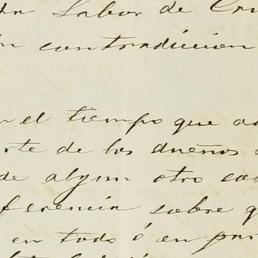 Labor de
contradiccion
el tiempo que
de los dueños
de algun otro
sobre
en todo ó en